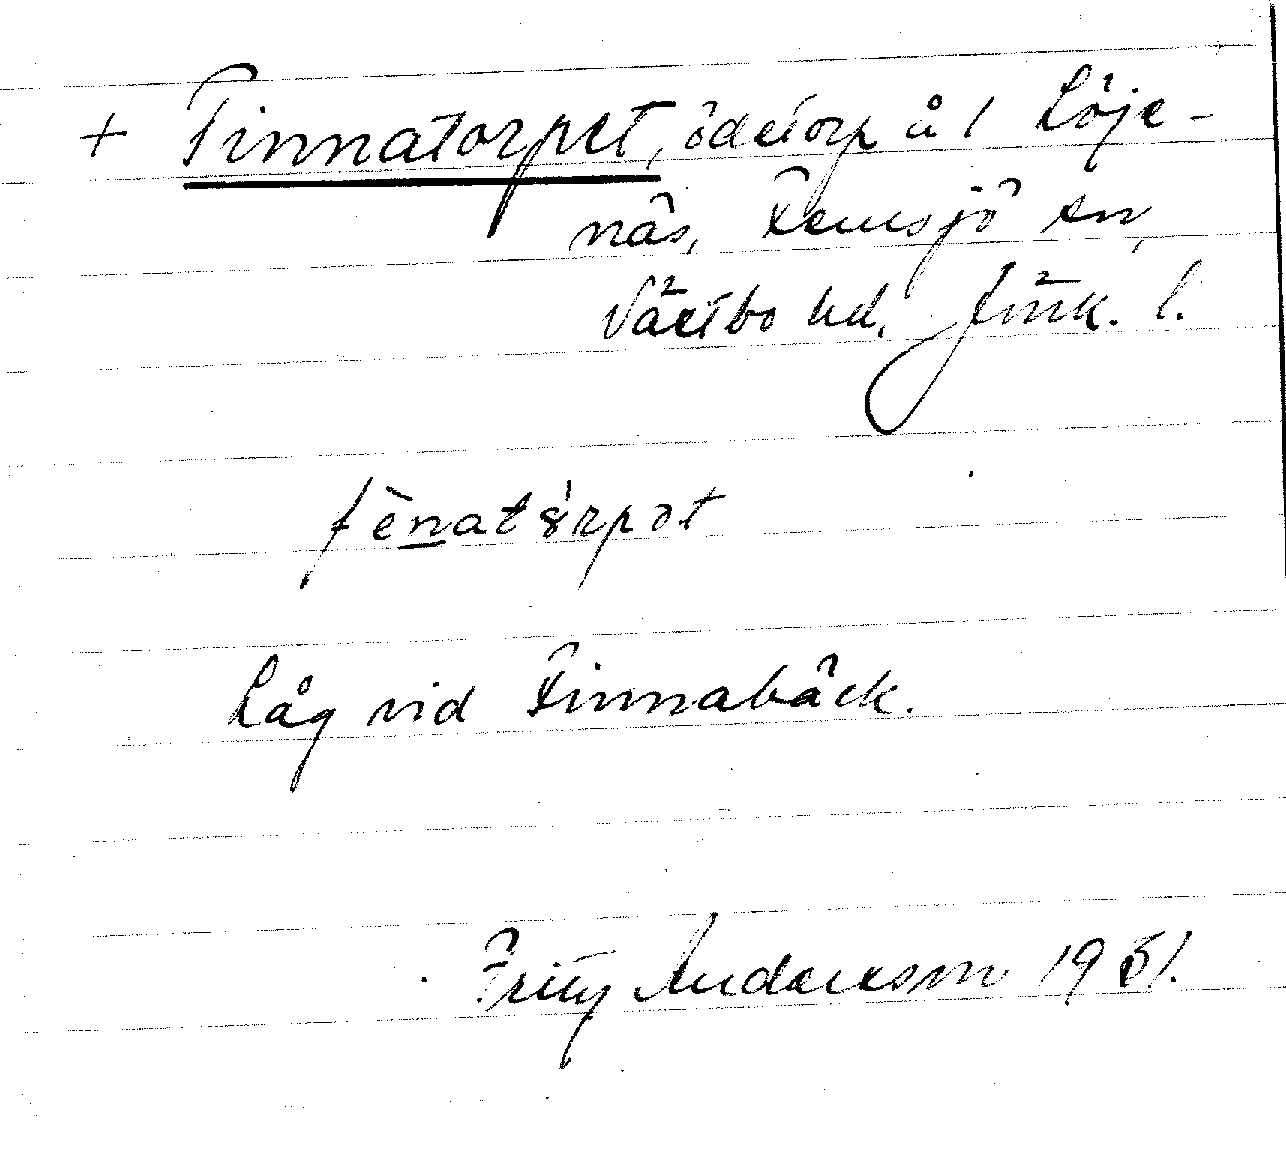 + Finnatorpet, ödetorp å 1 Löje-
näs, Femsjö sn,
Västbo hd, Jönk. l.
fènatórpət
Låg vid Finnabäck.
Fritz Andersson 1931.